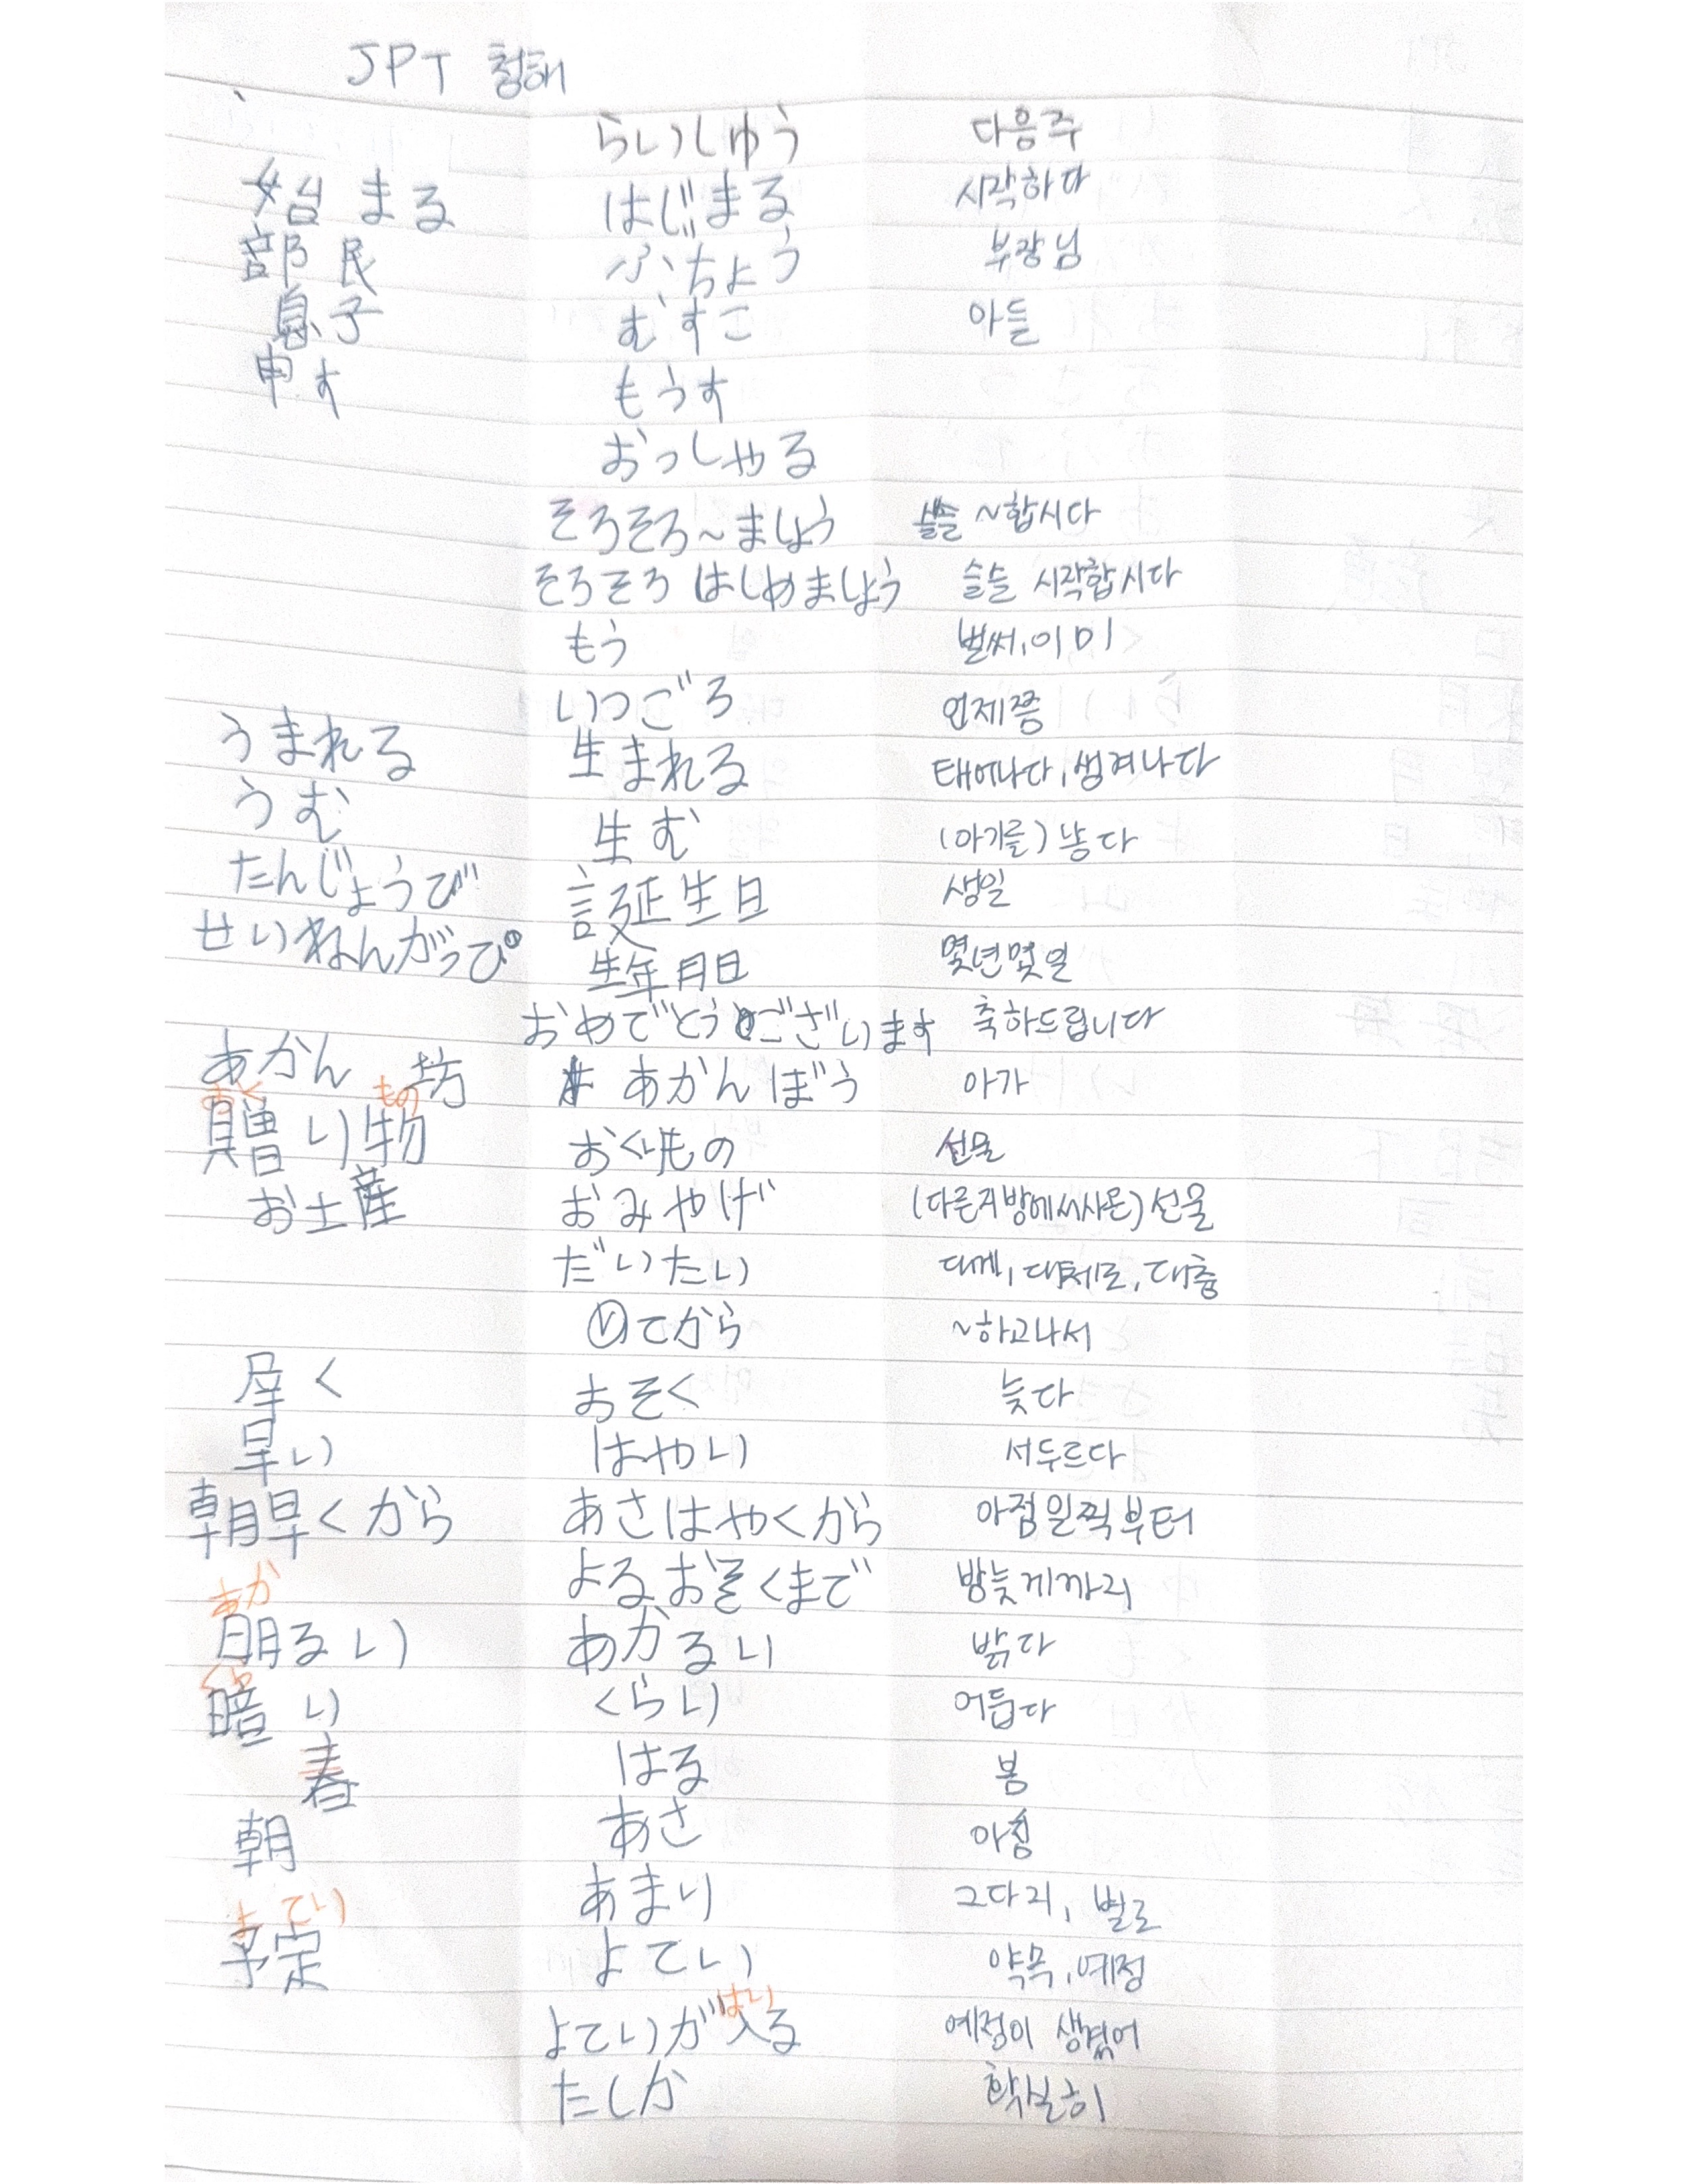 JPT 청해
らいしゅう 다음주
始まる はじまる 시작하다
部民 ぶちょう 부장님
息子 むすこ 아들
申す もうす
おっしゃる
そろそろ~ましょう 슬슬 ~합시다
そろそろ はじめましょう 슬슬 시작합시다
もう 벌써, 이미
いつごろ 언제쯤
うまれる 生まれる 태어나다, 생겨나다
うむ 生む (아기를) 낳다
たんじょうび 誕生日 생일
せいねんがっぴ 生年月日 몇년몇일
おめでとうございます 축하드립니다
あかん坊 あかんぼう 아가
おく もの
贈り物 おくりもの 선물
お土産 おみやげ (다른지방에서사온) 선물
だいたい 대게, 대체로, 대충
Ⓥてから ~하고나서
く おそく 늦다
早い はやい 서두르다
朝早くから あさはやくから 아침일찍부터
よるおそくまで 밤늦게까지
あか
明るい あかるい 밝다
くら
暗い くらい 어둡다
春 はる 봄
朝 あさ 아침
あまり 그다지, 별로
よてい
予定 よてい 약속, 예정
はい
よていが入る 예정이 생겼어
たしか 확실히